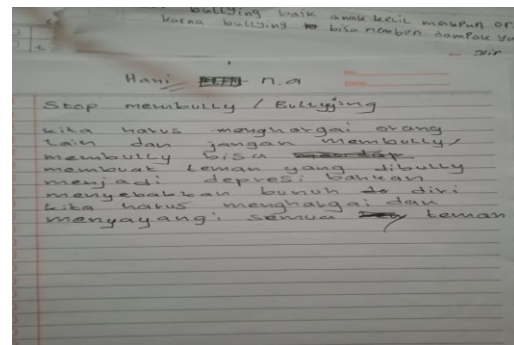 bullying baik anak kecil maupun or
karna bullying bisa memberi dampak ya
Hani n.a
Stop membully / Bullyjing
kita harus menghargai orang
lain dan jangan membully/
membully bisa
membuat teman yang dibully
menjadi depresi bahkan
menyebabkan bunuh diri
kita harus menghargai dan
menyayangi semua teman